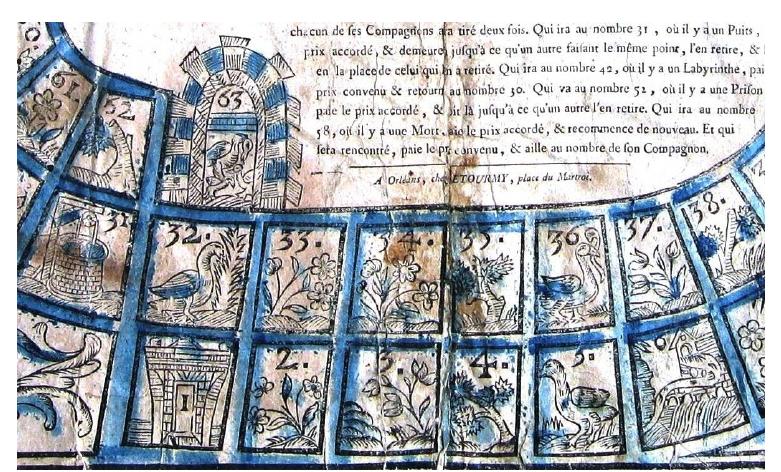 chacun de ſes Compagnons ara tiré deux fois. Qui ira au nombre 31 , où il y a un Puits ,
prix accordé, & demeure juſqu'à ce qu'un autre faiſant le même point, l'en retire, &
en la place de celui qui l'en a retiré. Qui ira au nombre 42, où il y a un Labyrinthe, pai
prix convenu & retourn au nombre 30. Qui va au nombre 52 , où il y a une Priſon
paie le prix accordé, & oit là juſqu'à ce qu'un autre l'en retire. Qui ira au nombre
58, où il y a une Mort, aie le prix accordé, & recommence de nouveau. Et qui
ſera rencontré, paie le pr convenu, & aille au nombre de ſon Compagnon.
A Orléans, chez LETOURMY, place du Martroi.
63
61
62
31
32.
33.
34.
35.
36
37.
38.
1
2.
3.
4.
5.
6.